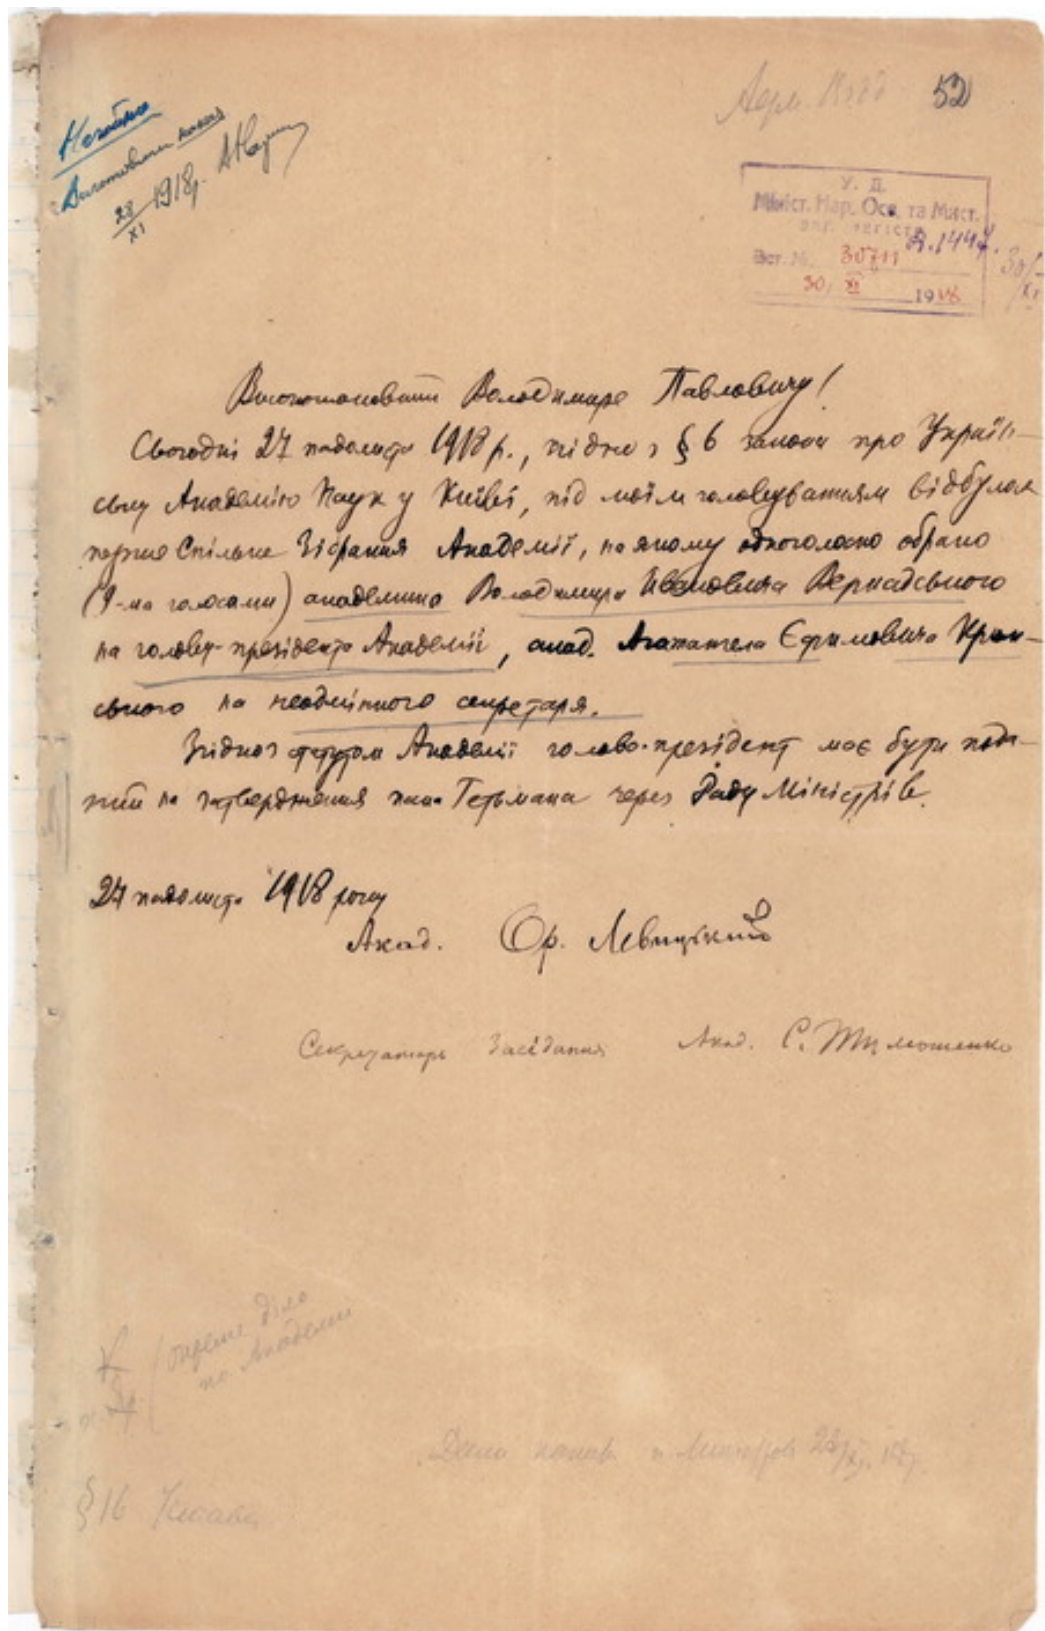 52
Негайно
28/XI 1918 р.
У. Д.
Мініст. Нар. Осв. та Мист.
Вст. №. 30711
30, XI 1918
30/XI
Високошановний Володимире Павловичу!
Сьогодні 27 падолиста 1918 р., згідно з § 6 закона про Україн-
ську Академію Наук у Київі, під моїм головуванням відбулося
перше Спільне Зібрання Академії, на якому одноголосно обрано
(9-ма голосами) академика Володимира Ивановича Вернадського
на голову-президента Академії, акад. Агатангела Єфимовича Крим-
ського на неодмінного секретаря.
Згідно з статутом Академії голова-президент має бути пода-
ний на затвердження пана Гетьмана через Раду Міністрів.
27 падолиста 1918 року
Акад. Ор. Левицький
Секретарь Засідання Акад. С. Тимошенко
окреме діло
по Академии
§ 16